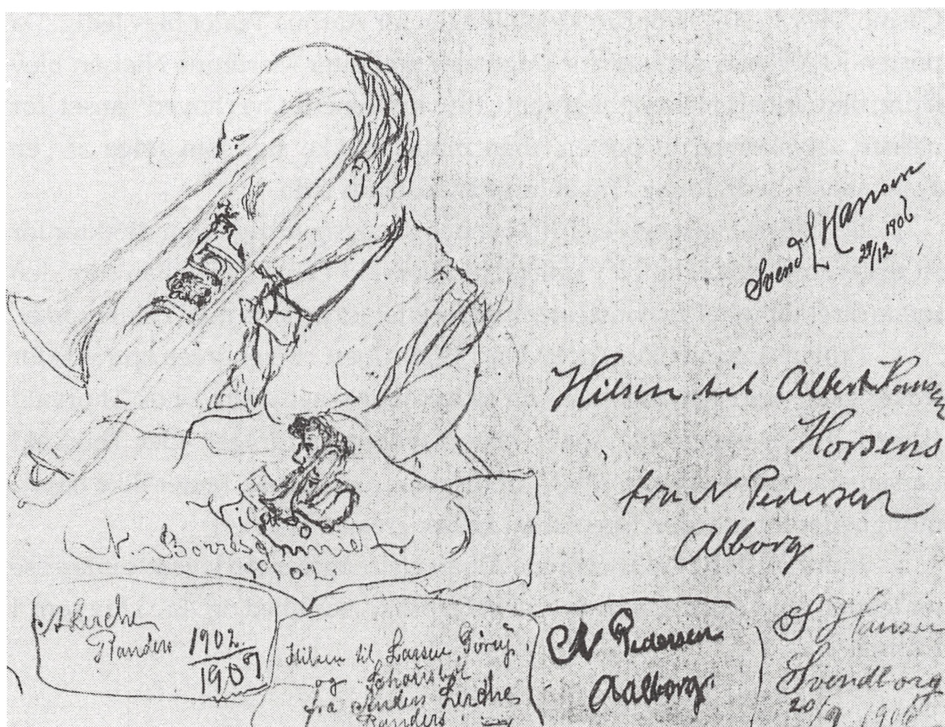 Svend L Hansen
28/12 1906
Hilsen til Albert
Horsens
fra N Pedersen
Alborg
N. Borres
19/ 02
A Lerche
Randers 1902
1907
Hilsen til Larsen
og
fra Anden Lerche
Randers
N Pedersen
Aalborg
S Hansen
Svendborg
20/9 1906